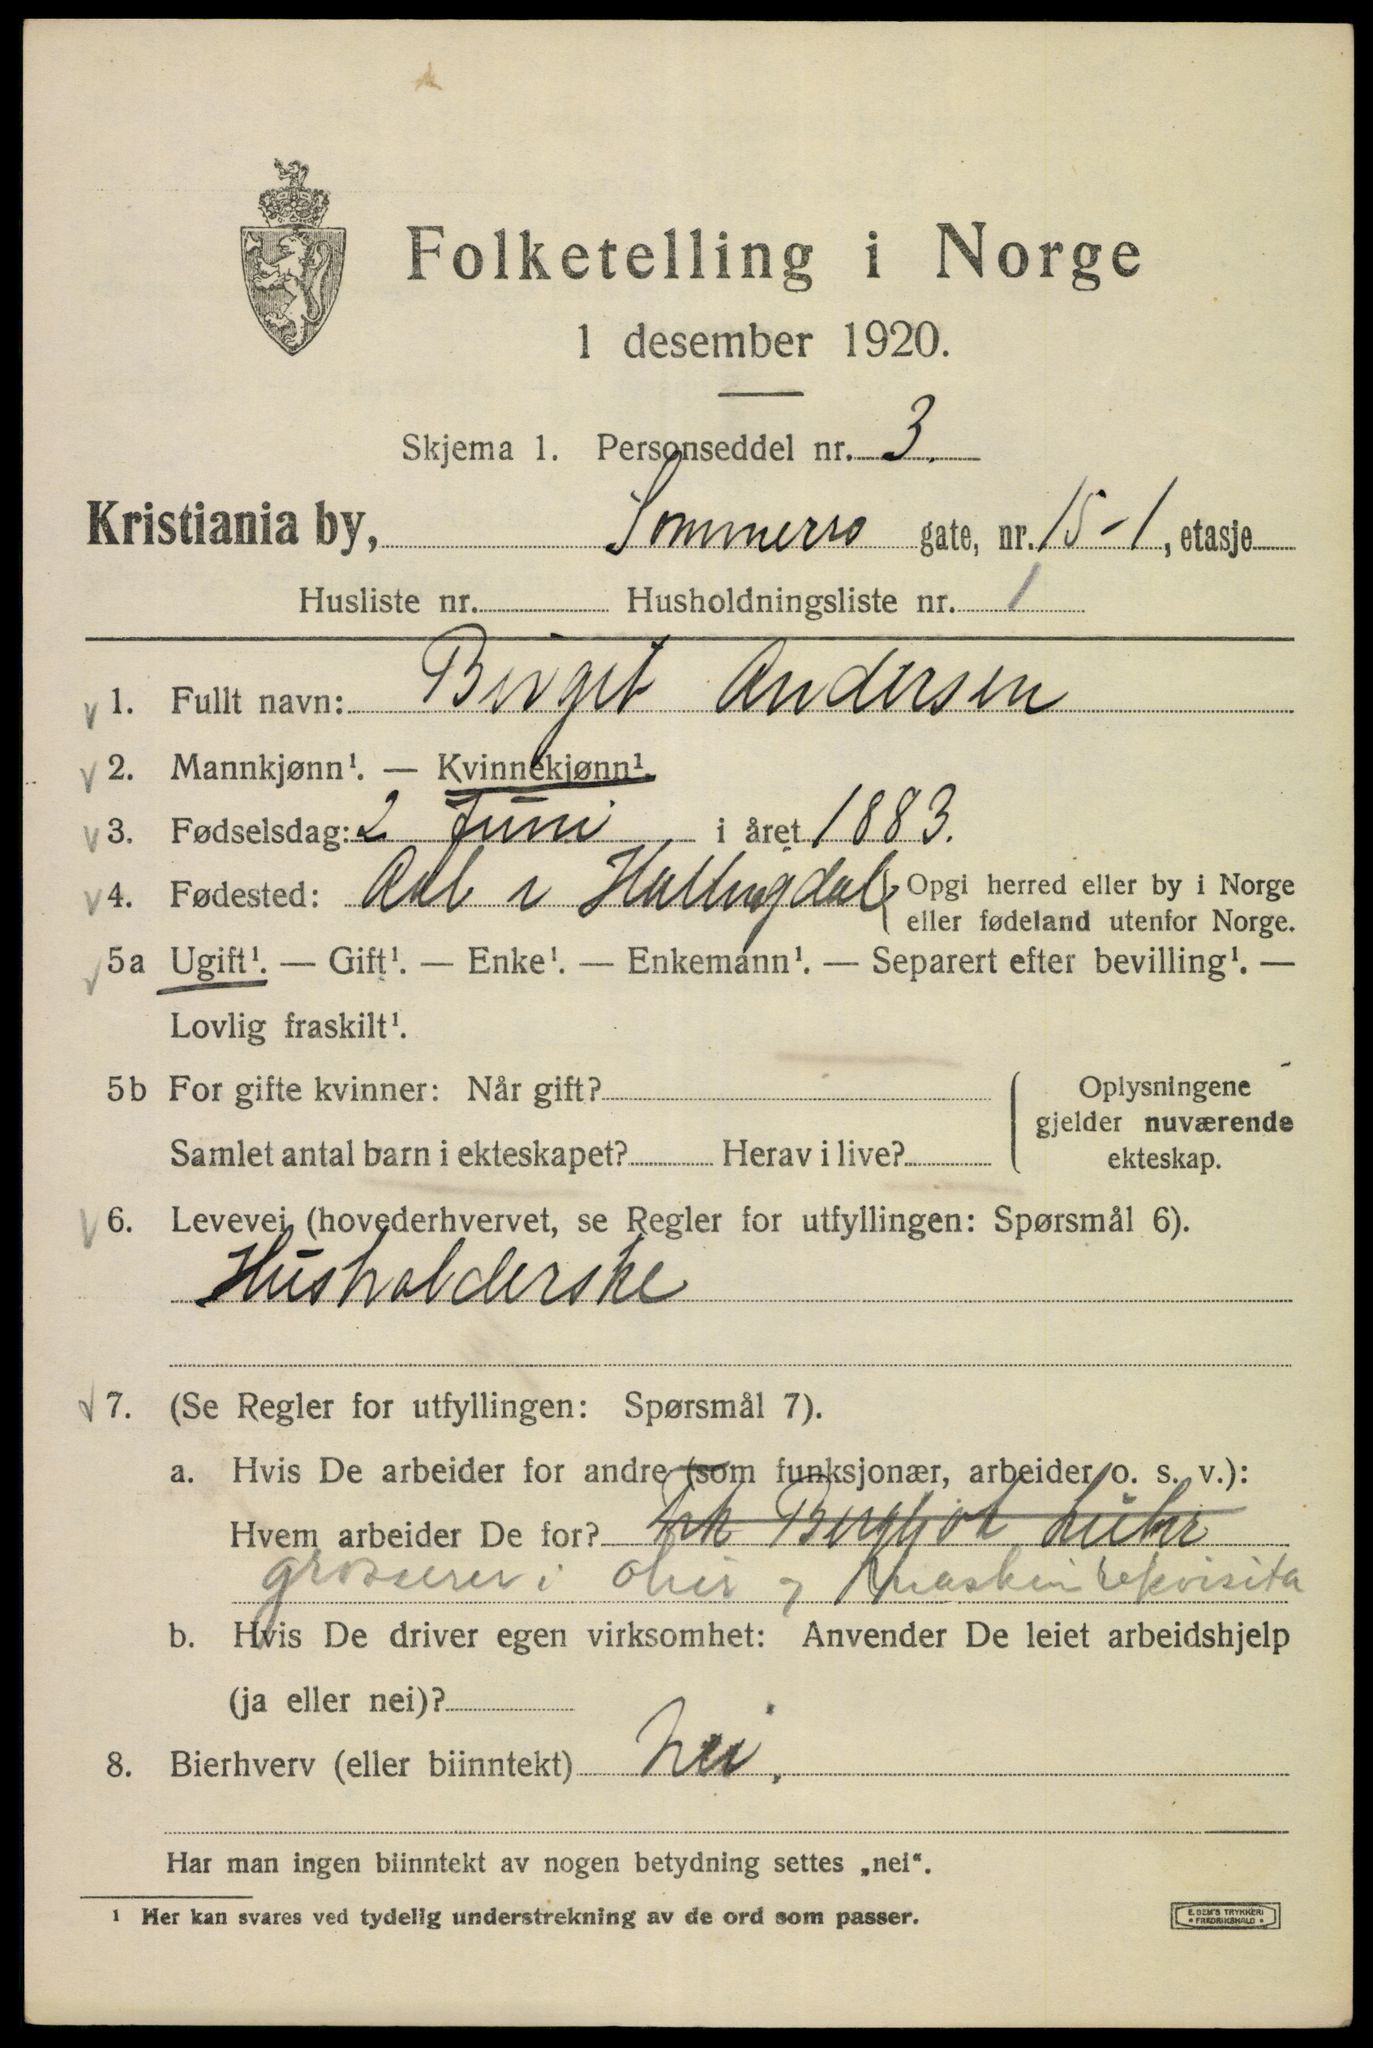 Folketelling i Norge
1 desember 1920.
Skjema 1. Personseddel nr. 3.
Kristiania by, Sommerro gate, nr. 15-1, etasje
Husliste nr. Husholdningsliste nr. 1
1. Fullt navn: Birgit Andersen
2. Mannkjønn¹. — Kvinnekjønn¹.
3. Fødselsdag: 2 Juni i året 1883.
4. Fødested: Aal i Hallingdal { Opgi herred eller by i Norge
eller fødeland utenfor Norge.
5a Ugift¹. — Gift¹. — Enke¹. — Enkemann¹. — Separert efter bevilling¹. —
Lovlig fraskilt¹.
5b For gifte kvinner: Når gift?
Samlet antal barn i ekteskapet? Herav i live?
Oplysningene
gjelder nuværende
ekteskap.
6. Levevei (hovederhvervet, se Regler for utfyllingen: Spørsmål 6).
Husholderske
7. (Se Regler for utfyllingen: Spørsmål 7).
a. Hvis De arbeider for andre (som funksjonær, arbeider o. s. v.):
Hvem arbeider De for? Frk Bergljot Lühr
grosserer i oljer og maskinrekvisita
b. Hvis De driver egen virksomhet: Anvender De leiet arbeidshjelp
(ja eller nei)?
8. Bierhverv (eller biinntekt) nei.
Har man ingen biinntekt av nogen betydning settes „nei“.
¹ Her kan svares ved tydelig understrekning av de ord som passer.
E. SEM'S TRYKKERI
* FREDRIKSHALD *